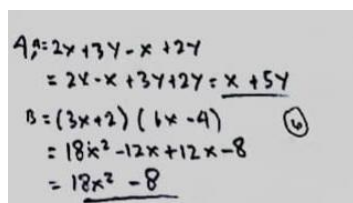 4) A = 2x + 3y - x + 2y
= 2x - x + 3y + 2y = x + 5y
B = (3x + 2) (6x - 4)
= 18x² - 12x + 12x - 8
= 18x² - 8